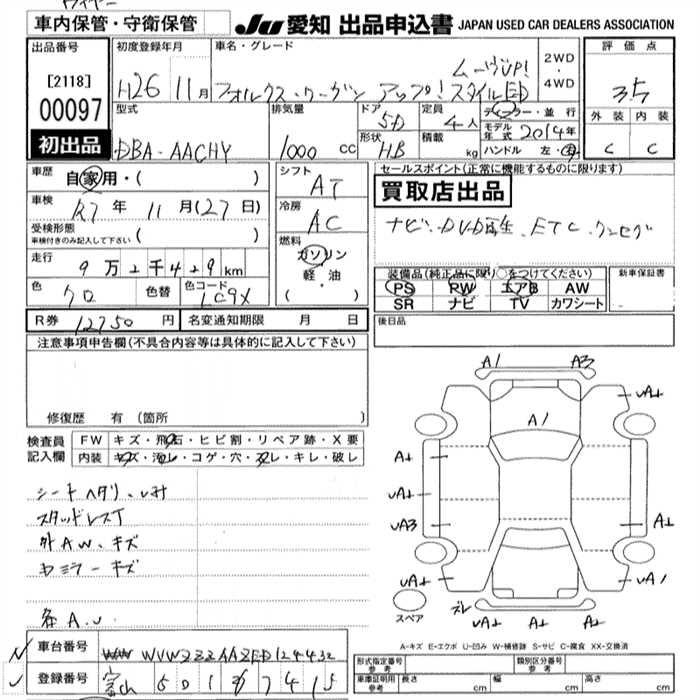 車内保管・守衛保管
JU 愛知 出品申込書 JAPAN USED CAR DEALERS ASSOCIATION
出品番号
[2118]
00097
初出品
初度登録年月
H26 11月
車名・グレード
ムーヴUP!
フォルクスワーゲン アップ!
2WD
・
4WD
評価点
3.5
外装 内装
C C
型式
DBA-AACHY
排気量
1000 cc
ドア
5D
形状
HB
定員
4人
積載
kg
ディーラー・並行
モデル年式 2014年
ハンドル 左・右
車歴
自家用・( )
車検
R7年 11月(27日)
受検形態
車検付きのみ記入して下さい ( )
走行
9万2千4 9km
色
クロ
色替
色コード
LC9X
シフト
AT
冷房
AC
燃料
ガソリン
・
軽・油
( )
セールスポイント(正常に機能するものに限ります)
買取店出品
ナビ・DVD再生、ETC、ワンセグ
装備品(純正品に限り○をつけてください)
PS PW エアB AW
SR ナビ TV カワシート
新車保証書
R券 12750円
名変通知期限 月 日
後日品
注意事項申告欄(不具合内容等は具体的に記入して下さい)
修復歴 有(箇所 )
検査員
記入欄
FW キズ・飛石・ヒビ割・リペア跡・X要
内装 キズ・汚レ・コゲ・穴・スレ・キレ・破レ
シートヘタリ
スタッドレスT
外AW、キズ
キズ
各A.U
A1 A3
A1
UA3
UA1
スペア
A-キズ E-エクボ U-凹み W-補修跡 S-サビ C-腐食 XX-交換済
車台番号
WVWZZZAAZED124432
登録番号
501
7415
形式指定番号
参考
類別区分番号
参考
車庫証明用
参考
長さ cm 幅 cm 高さ cm